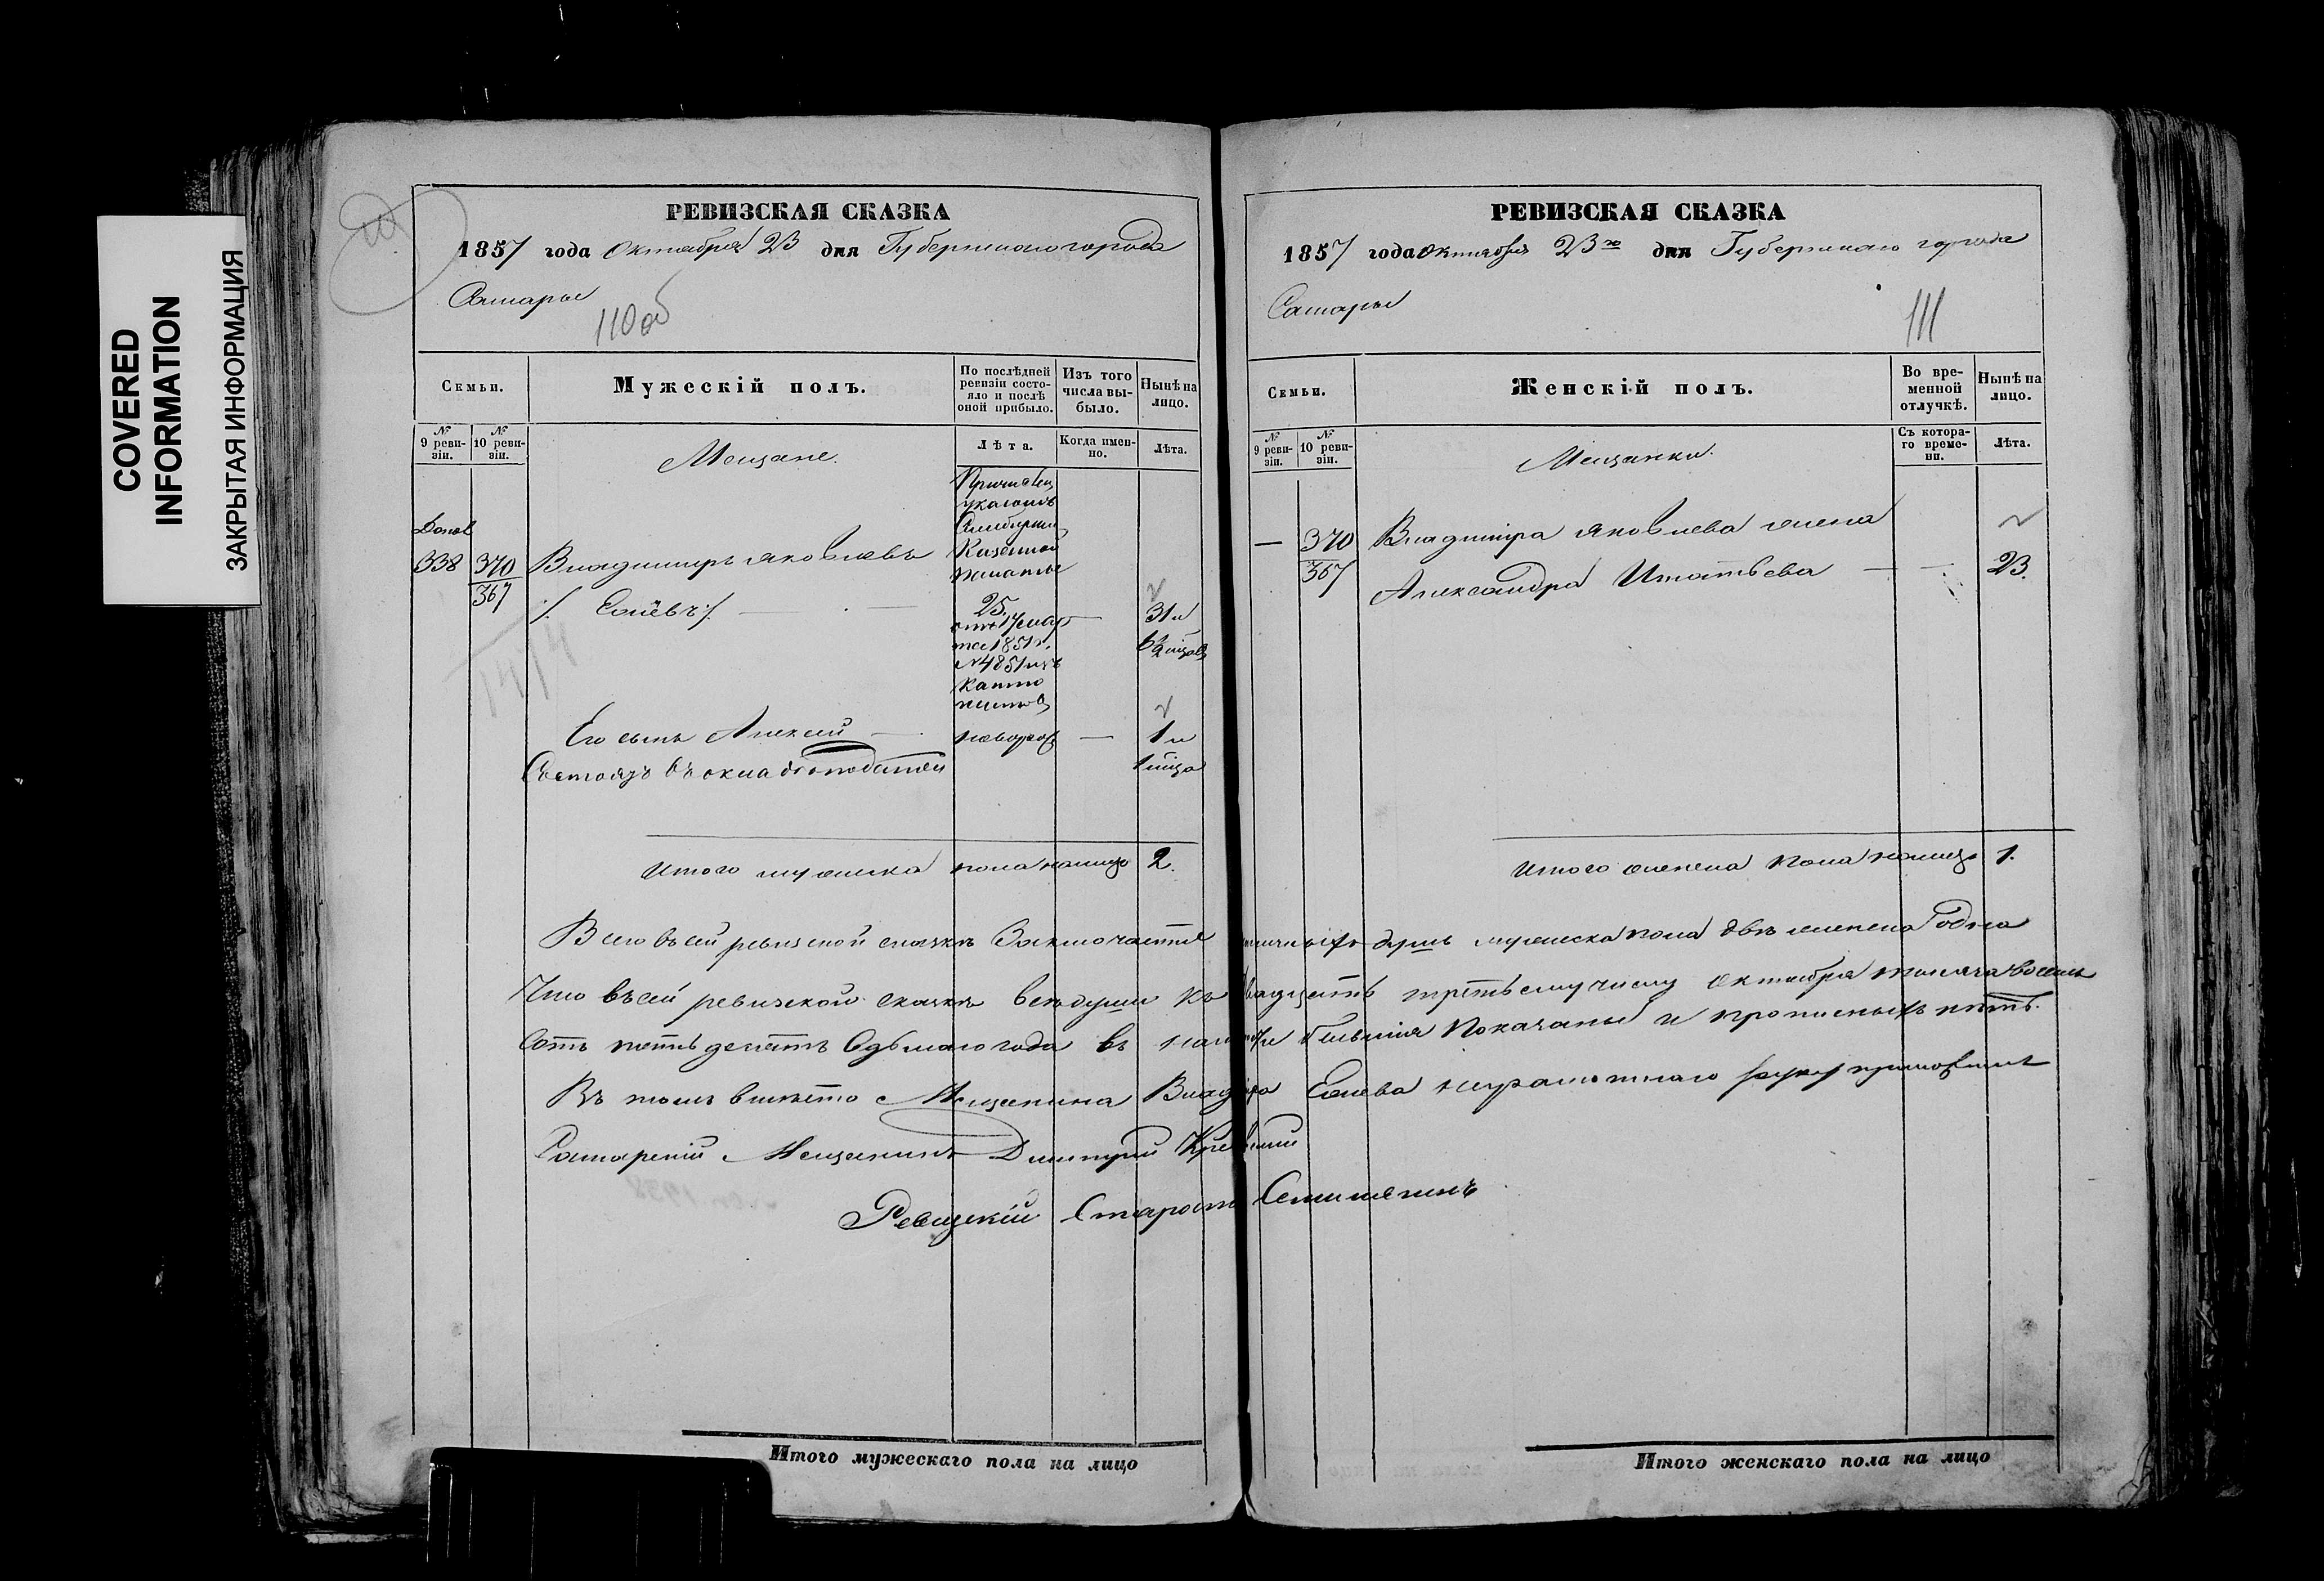 COVERED
INFORMATION
ЗАКРЫТАЯ ИНФОРМАЦИЯ
РЕВИЗСКАЯ СКАЗКА
1857 года Октября 23 дня Губернскаго города
Самары
110 об
Семьи.
Мужескій полъ.
По послѣдней ревизіи состо-
яло и послѣ
оной прибыло.
Изъ того
числа вы-
было.
Нынѣ на
лицо.
№
9 реви-
зіи.
№
10 реви-
зіи.
Мещане.
Лѣта.
Когда имен-
но.
Лѣта.
указомъ
Казенной
палаты
338 370 Владимиръ Яковлевъ
367
25.
31 и
1851 г.
№ 4851 изъ
канто
нистовъ
1414
Его сынъ Алексей — — 1 и
Итого мужеска пола налицо 2.
РЕВИЗСКАЯ СКАЗКА
1857 года Октября 23го дня Губернскаго города
Самары
111
Семьи.
Женскій полъ.
Во вре-
менной
отлучкѣ.
Нынѣ на
лицо.
№
9 реви-
зіи.
№
10 реви-
зіи.
Мещанки.
Съ котора-
го време-
ни.
Лѣта.
— 370 Владиміра Яковлева жена
367 Александра Игнатьева — — 23.
Итого женска пола налицо 1.
Всего въ сей ревизской сказкѣ Заключается душъ мужеска пола двѣ женска одна
Что въ сей ревизской сказкѣ все души къ двадцать третьему числу Октября тысяча восемь
Сотъ пятьдесятъ Седьмаго года въ бывшія Показаны и прописныхъ нѣтъ.
Въ томъ вмѣсто Мещанина неграмотнаго руку приложилъ
Самарскій Мещанинъ Дмитрий
Ревизскій Староста
Итого мужескаго пола на лицо
Итого женскаго пола на лицо